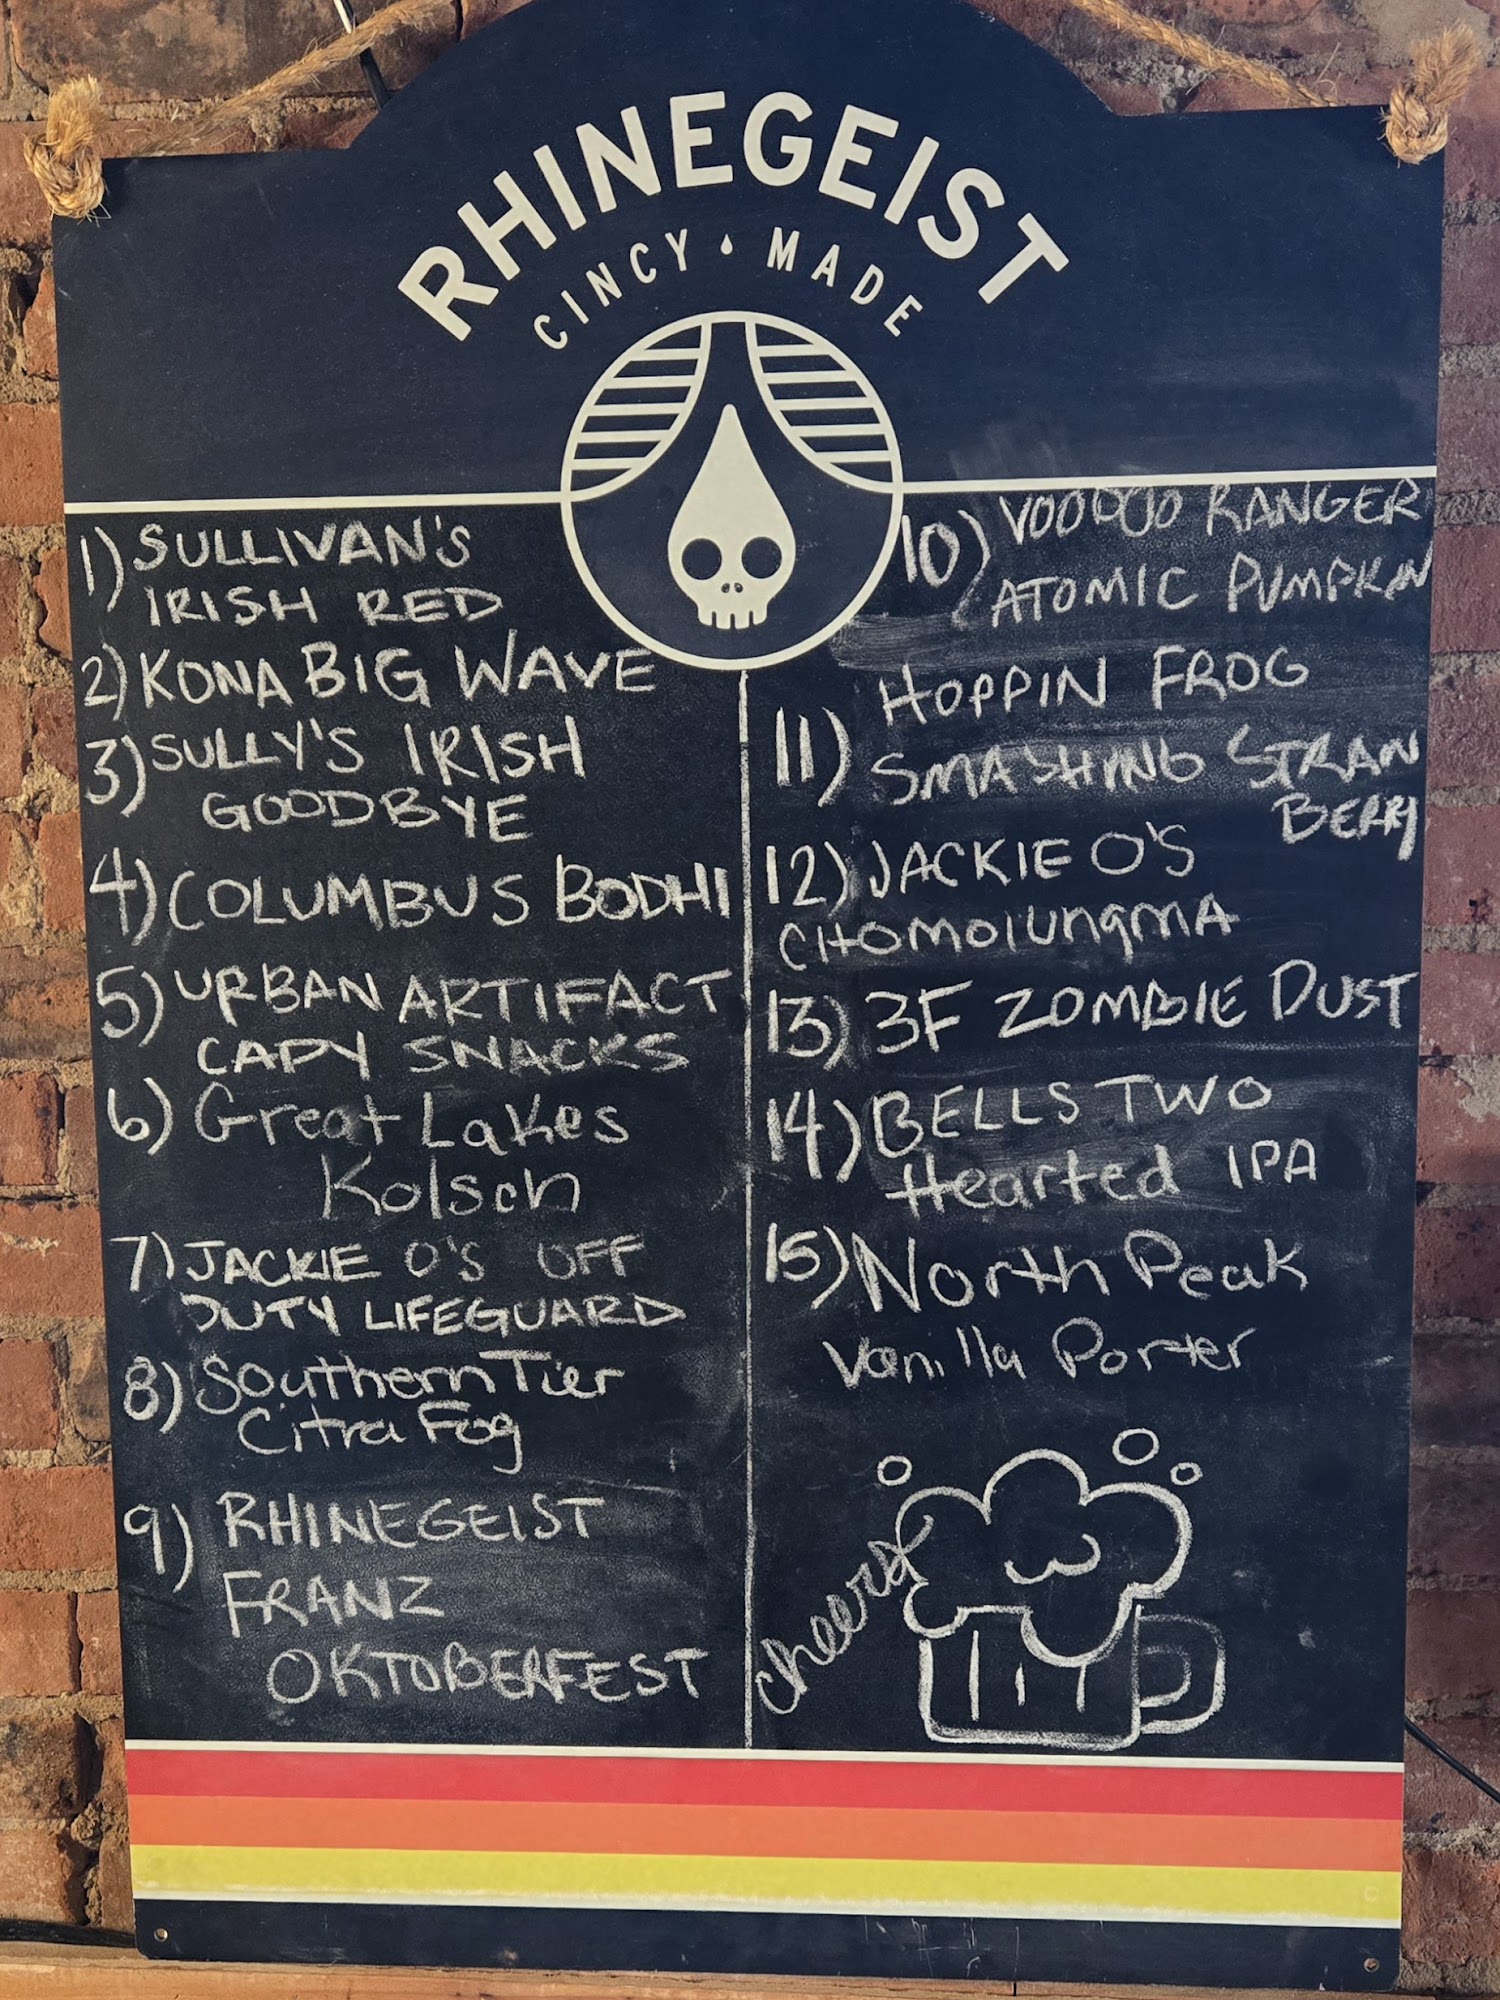 RHINEGEIST
CINCY MADE
1) SULLIVAN'S
IRISH RED
2) KONA BIG WAVE
3) SULLY'S IRISH
GOODBYE
4) COLUMBUS BODHI
5) URBAN ARTIFACT
CAPY SNACKS
6) Great Lakes
Kolsch
7) JACKIE O'S OFF
DUTY LIFEGUARD
8) Southern Tier
Citra Fog
9) RHINEGEIST
FRANZ
OKTOBERFEST
10) VOODOO RANGER
ATOMIC PUMPKIN
HOPPIN FROG
11) SMASHING STRAW
BERRY
12) JACKIE O'S
CHOMOlUNgMA
13) 3F ZOMBIE DUST
14) BELLS TWO
Hearted IPA
15) North Peak
Vanilla Porter
cheers